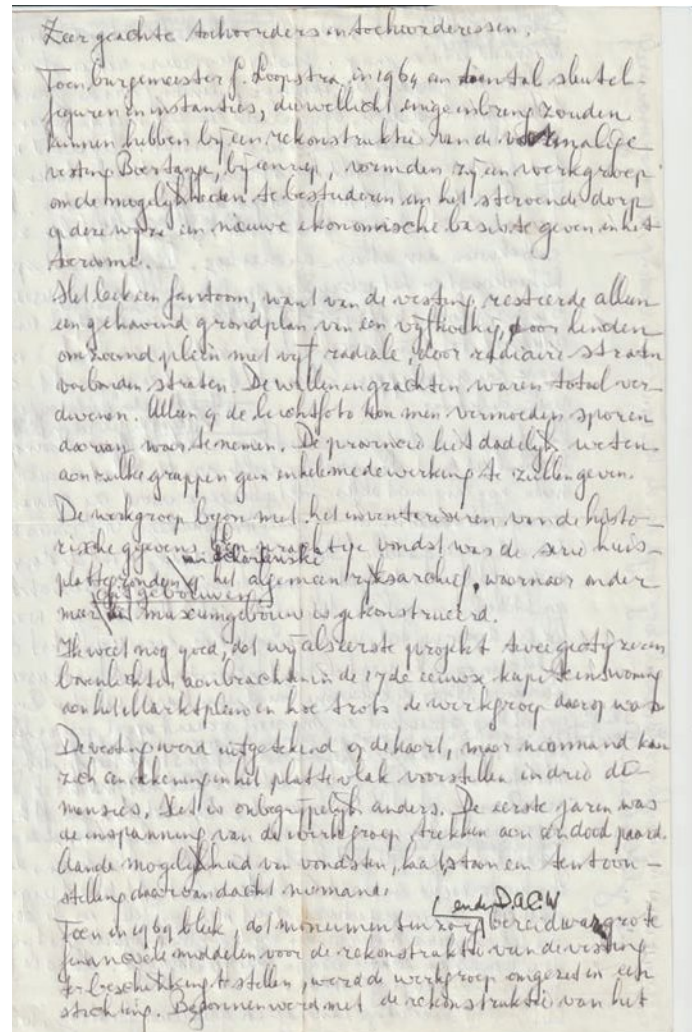 Zeer geachte toehoorders en toehoorderessen.
Toen burgemeester f. Loopstra in 1964 een tiental sleutel-
figuren en instanties, die wellicht enige inbreng zouden
kunnen hebben bij een rekonstruktie van de voormalige
vesting Boertange, bijeenriep, vormden zij een werkgroep
om de mogelijkheden te bestuderen om het stervende dorp
op deze wijze een nieuwe ekonomische basis te geven in het
toerisme.
Het leek een fantoom, want van de vesting resteerde alleen
een gehavend grondplan van een vijfhoekig, door linden
omzoomd plein met vijf radiale, door radiaire straten
verbonden straten. De wallen en grachten waren totaal ver-
dwenen. Alleen op de luchtfoto kon men vermoeden sporen
daarvan waar te nemen. De provincie liet dadelijk weten
aan zulke grappen geen enkele medewerking te zullen geven.
De werkgroep begon met het inventariseren van de histo-
rische gegevens. Een prachtige vondst was de serie huis-
plattegronden op het algemeen rijksarchief, waarnaar onder
meer museumgebouw is gekonstrueerd.
Ik weet nog goed, dat wij als eerste projekt twee gietijzeren
bovenlichten aanbrachten in de 17de eeuwse kapiteinswoning
aan het Marktplein en hoe trots de werkgroep daarop was
De vesting werd uitgetekend op de kaart, maar niemand kan
zich een tekening in het platte vlak voorstellen in drie di-
mensies. Het is onbegrijpelijk anders. De eerste jaren was
de inspanning van de werkgroep, trekken aan een dood paard.
Aan de mogelijkheid van vondsten, laat staan een tentoon-
stelling daarvan dacht niemand.
en de D.A.C.W
Toen in 1969 bleek, dat monumentenzorg bereid was grote
financiele middelen voor de rekonstruktie van de vesting
ter beschikking te stellen, werd de werkgroep omgezet in een
stichting. Begonnen werd met de rekonstruktie van het